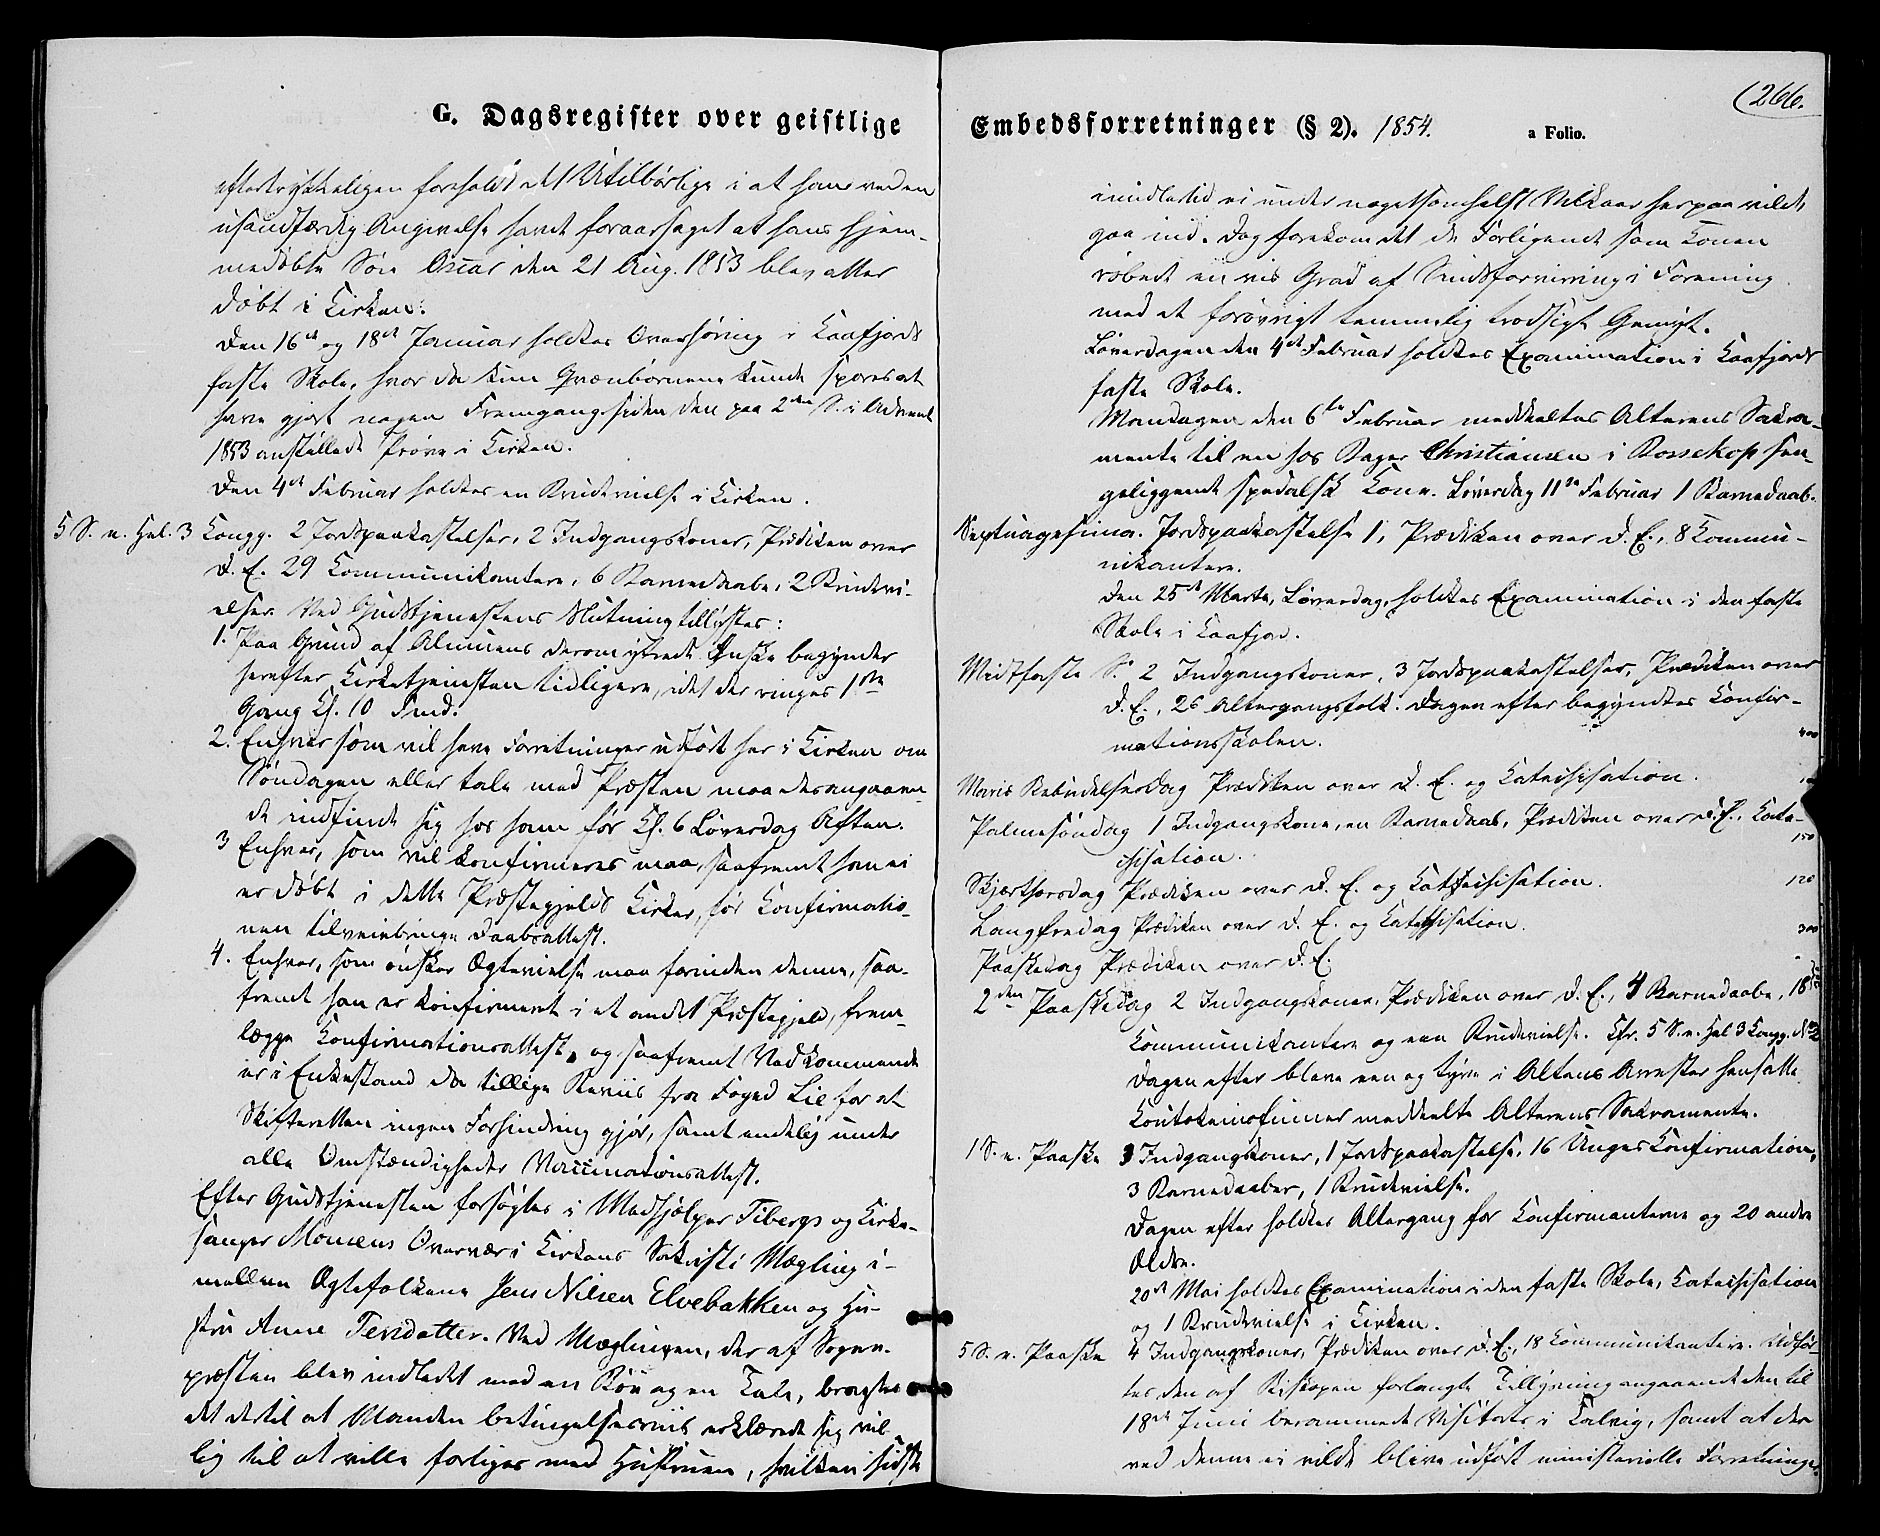 G. Dagsregister over geistlige
eftertrykkeligen foreholdt det Utilbørlige i at han ved en
usandfærdig Angivelse havde foraarsaget at hans hjem-
medøbte Søn Oscar den 21 Aug. 1853 blev atter
døbt i Kirken.
Den 16de og 18de Januar holdtes Overhøring i Kaafjords
faste Skole, hvor da kun Qvænbørnene kunde spores at
have gjort nogen Fremgang siden den paa 2den S. i Advent
1853 anstillede Prøve i Kirken.
Den 4de Februar holdtes en Brudevielse i Kirken.
5 S. e. Hel. 3 Kongg. 2 Jordspaakastelser, 2 Indgangskoner, Prædiken over
D. E. 29 Communikantere, 6 Barnedaabe, 2 Brudevi-
elser. Ved Gudstjenestens Slutning tillystes:
1. Paa Grund af Almuens derom ytrede Ønske begynder
herefter Kirketjenesten tidligere, idet der ringes 1ste
Gang Kl. 10 Fmd.
2. Enhver som vil have Forretninger udført her i Kirken om
Søndagen eller tale med Præsten maa desangaaen-
de indfinde sig hos ham før Kl. 6 Løverdag Aften.
3 Enhver, som vil konfirmeres maa, saafremt han ei
er døbt i dette Præstegjelds Kirker, før Konfirmatio-
nen tilveiebringe Daabsattest.
4. Enhver, som ønsker Ægtevielse maa forinden denne, saa-
fremt han er konfirmeret i et andet Præstegjeld, frem-
lægge Konfirmationsattest, og saafremt Vedkommende
er i Enkestand da tillige Beviis fra Foged Lie for at
Skifteretten ingen Forhindring gjør, samt endelig under
alle Omstændigheder Vaccinationsattest.
Efter Gudstjenesten forsøgtes i Medhjælper Tibergs og Kirke-
sanger Monsens Overvær i Kirkens Sakristi Mægling i-
mellem Ægtefolkene Jens Nilsen Elvebakken og Hu-
stru Anne Tersdatter. Ved Mæglingen, der af Sogne-
præsten blev indledet med en Bøn og en Tale, bragtes
det dertil at Manden betingelsesviis erklærede sig vil-
lig til at ville forliges med Hustruen, hvilken sidste
Embedsforretninger (§ 2). 1854.
a Folio.
(266.
imidlertid ei under nogetsomhelst Vilkaar herpaa vilde
gaa ind. Dog forekom det de Forligende som Konen
røbede en vis Grad af Sindsforvirring i Forening
med et forøvrigt temmelig trodsigt Gemyt.
Løverdagen den 4de Februar holdtes Examination i Kaafjords
faste Skole.
Mandagen den 6te Februar meddeeltes Alterens Sakra-
mente til en hos Bager Christiansen i Bossekop sen-
geliggende spedalsk Kone. Løverdag 11te Februar 1 Barnedaab.
Septuagesima. Jordspaakastelse 1, Prædiken over D. E., 8 Kommu-
nikantere.
Den 25de Marts, Løverdag, holdtes Examination i den faste
Skole i Kaafjord.
Midtfaste S. 2 Indgangskoner, 3 Jordspaakastelser, Prædiken over
D. E., 26 Altergangsfolk. Dagen efter begyndtes Konfir-
mationsskolen.
400
Mariæ Bebudelsesdag Prædiken over D. E. og Katechisation.
Palmesøndag 1 Indgangskone, en Barnedaab, Prædiken over D. E., Kate-
chisation.
150
Skjærthorsdag Prædiken over D. E. og Katechisation.
120
Langfredag Prædiken over D. E. og Katechisation.
300
Paaskedag Prædiken over D. E.
2den Paaskedag 2 Indgangskoner, Prædiken over D. E., 4 Barnedaabe, 18
Kommunikantere og een Brudevielse. Cfr. 5 S. e. Hel. 3 Kongg.
Dagen efter bleve een og tyve i Altens Arrester hensatte
Koutokeinofinner meddeelte Alterens Sakramente.
1 S. e. Paaske 3 Indgangskoner, 1 Jordspaakastelse, 16 Unges Konfirmation,
3 Barnedaaber, 1 Brudevielse.
Dagen efter holdtes Altergang for Konfirmanterne og 20 andre
Ældre.
20de Mai holdtes Examination i den faste Skole, Katechisation
og 1 Brudevielse i Kirken.
5 S. e. Paaske 4 Indgangskoner, Prædiken over D. E., 18 Kommunikantere. Udfør-
tes den af Biskopen forlangte Tillysning angaaende den til
18de Juni berammede Visitats i Talvig, samt at der
ved denne ei vilde blive udført ministerielle Forretninger